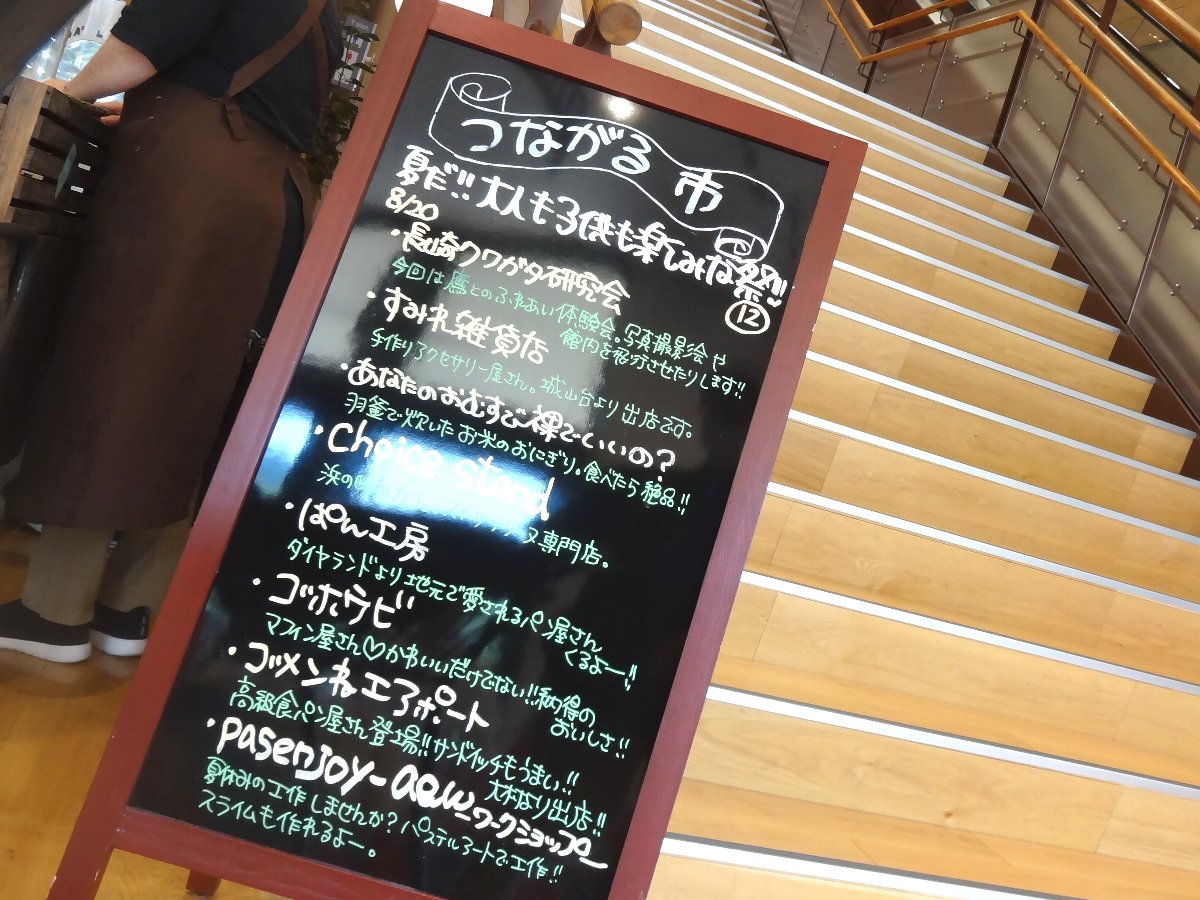 つながる市
夏だ!!大人も子供も楽しみな祭!!
⑫
8/20
・長崎クワガタ研究会
今回は鷹とのふれあい体験会。写真撮影会や
館内を飛行させたりします!!
・すみれ雑貨店
手作りアクセサリー屋さん。城山台より出店です。
・あなたのおむすび裸でいいの?
羽釜で炊いたお米のおにぎり。食べたら絶品!!
・Choice stand
浜の町 専門店。
・ぱん工房
ダイヤランドより地元で愛されるパン屋さん
くるよー!!
・コッホウビ
マフィン屋さん♡かわいいだけでない!!納得の
おいしさ!!
・コッメンねエアポート
高級食パン屋さん登場!!サンドイッチもうまい!!
大村より出店!!
・pasenjoy-aew_ワークショップ
夏休みの工作しませんか?パステルアートで工作!!
スライムも作れるよー。